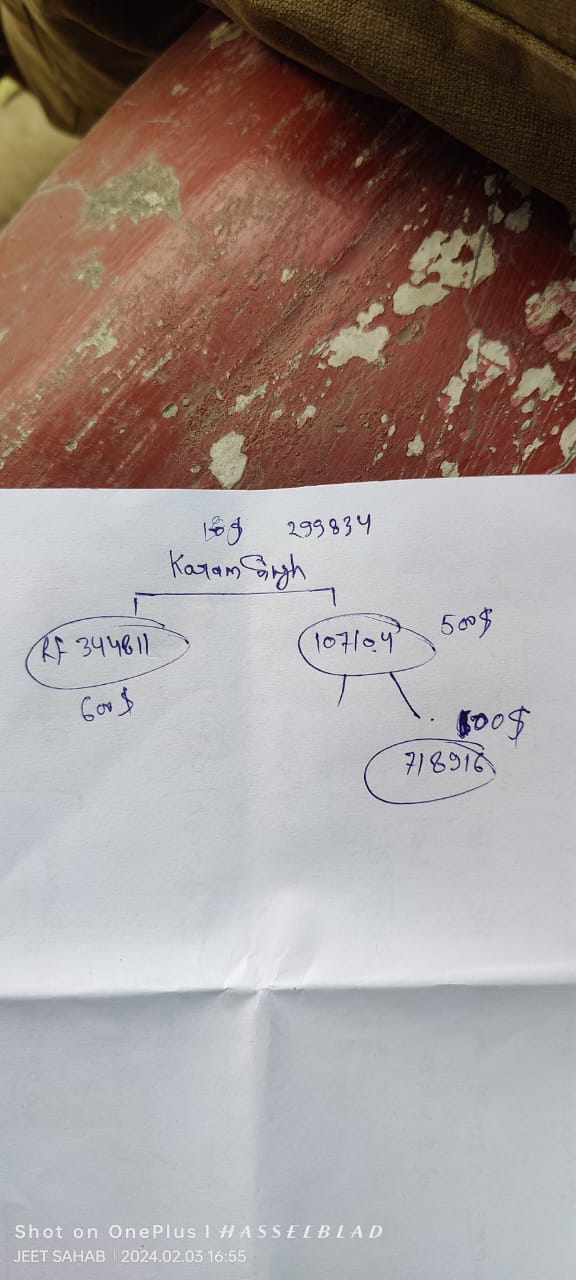 299834
Karam Singh
RF 344811
107104
500$
600$
100$
718916
Shot on OnePlus | HASSELBLAD
JEET SAHAB | 2024.02.03 16:55